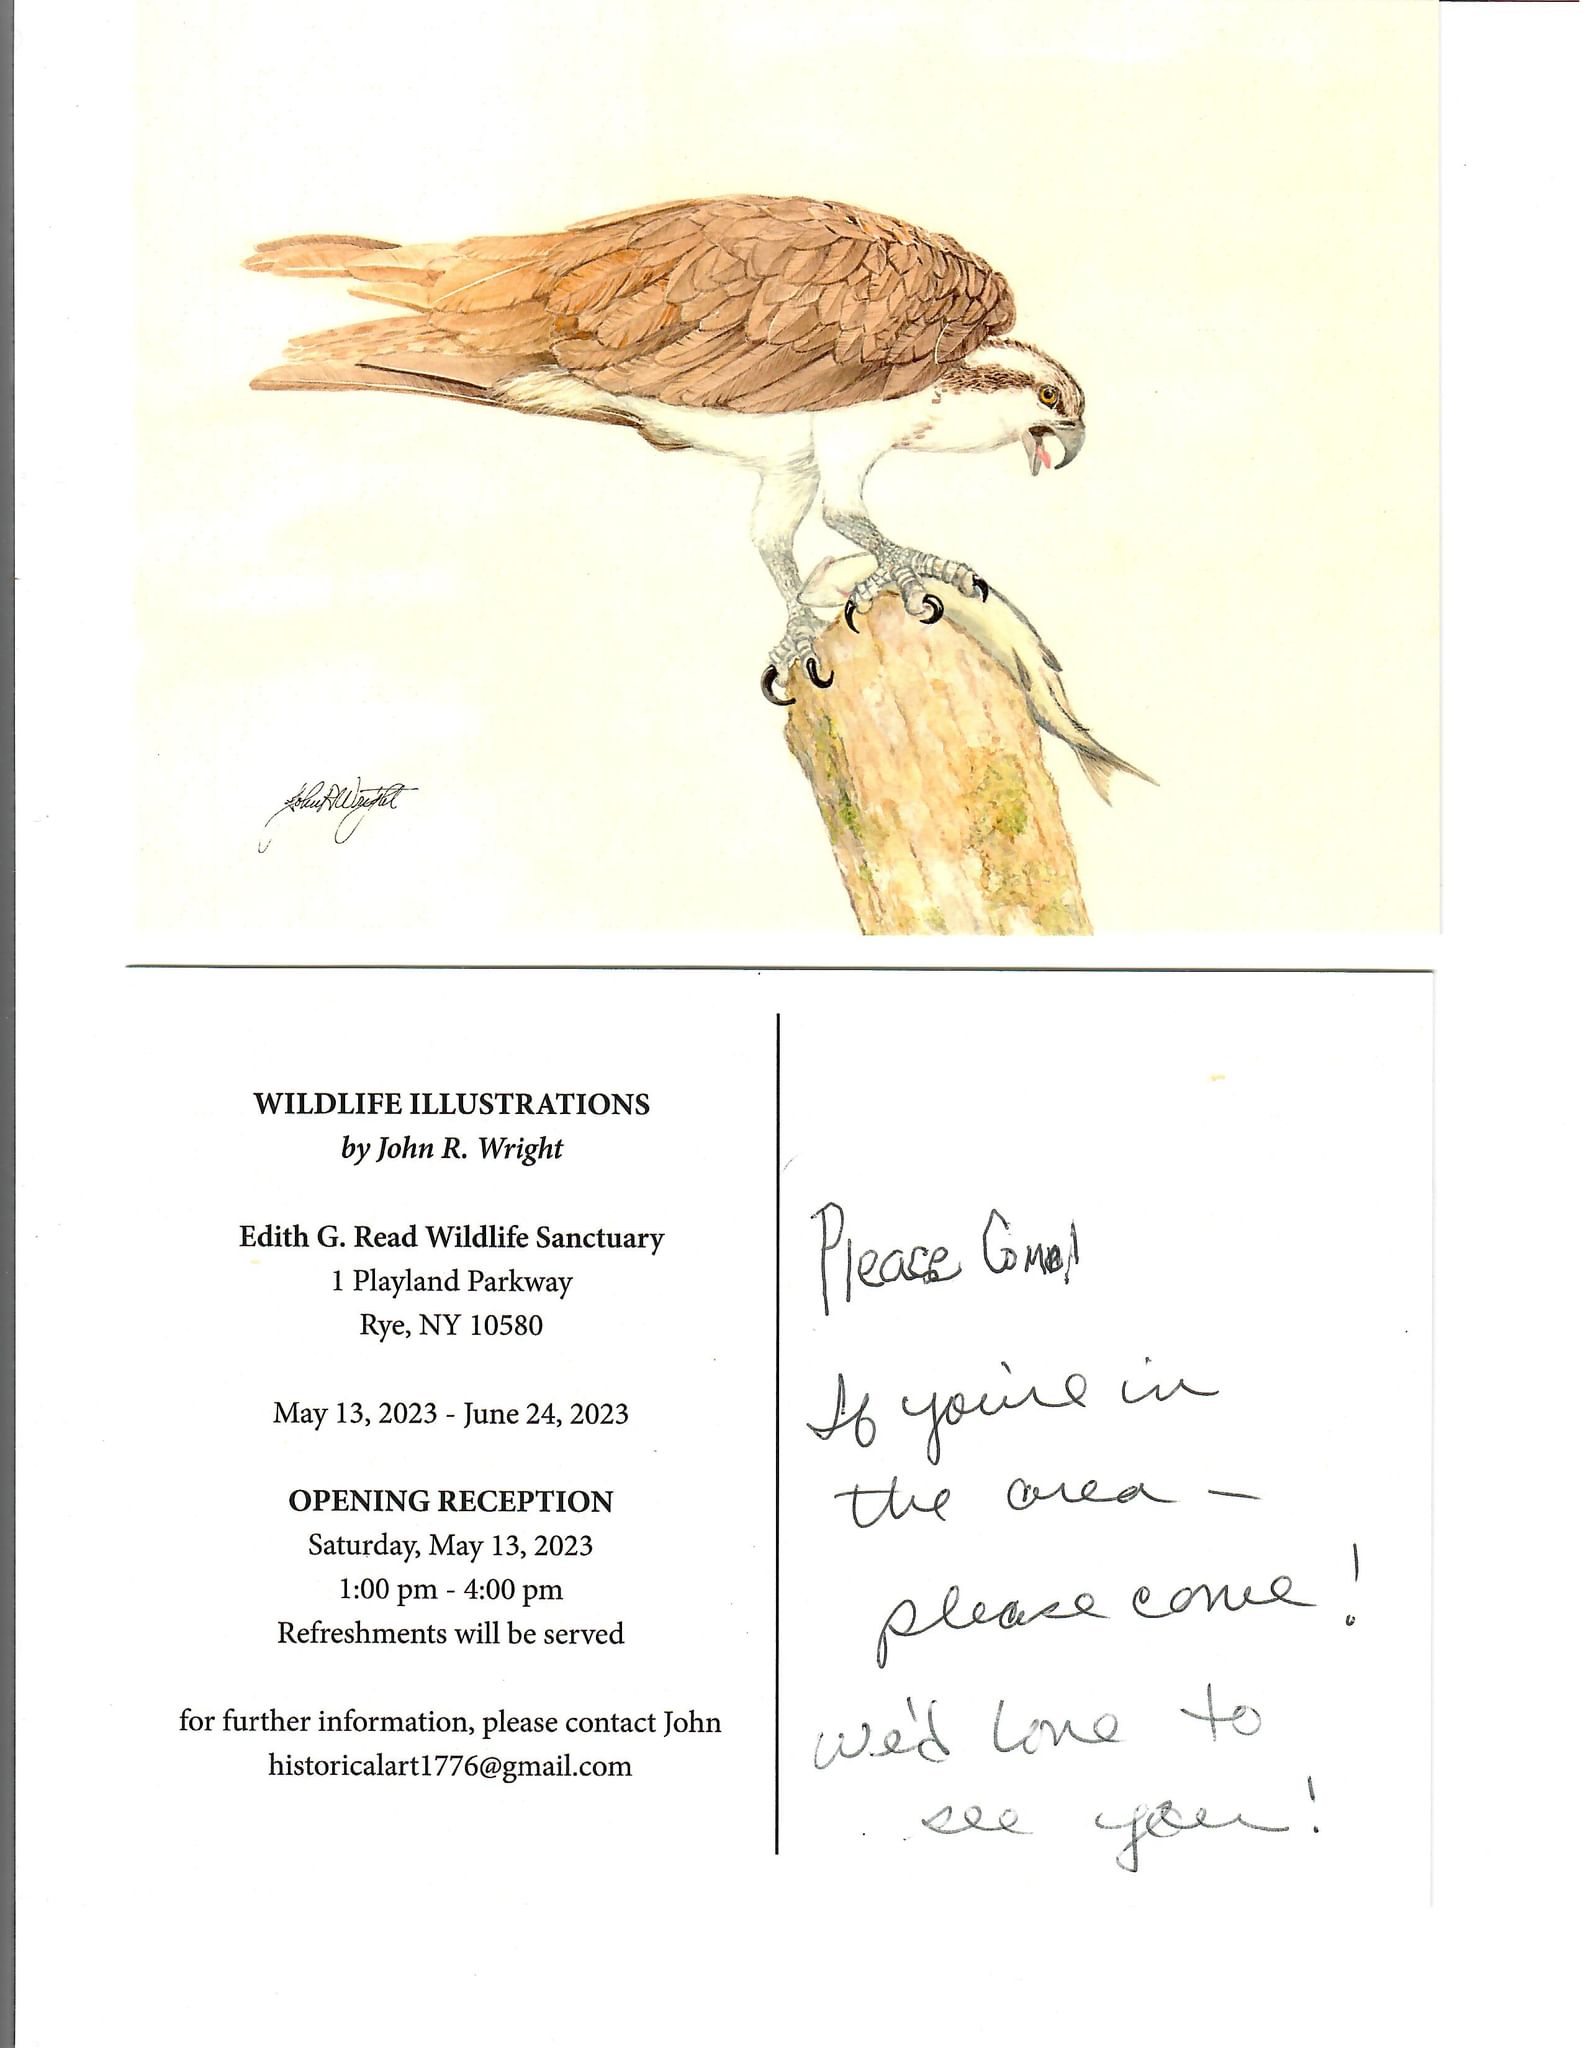 John R Wright
WILDLIFE ILLUSTRATIONS
by John R. Wright
Edith G. Read Wildlife Sanctuary
1 Playland Parkway
Rye, NY 10580
May 13, 2023 - June 24, 2023
OPENING RECEPTION
Saturday, May 13, 2023
1:00 pm - 4:00 pm
Refreshments will be served
for further information, please contact John
historicalart1776@gmail.com
Please Come!
If you're in
the area -
please come!
we'd love to
see you!